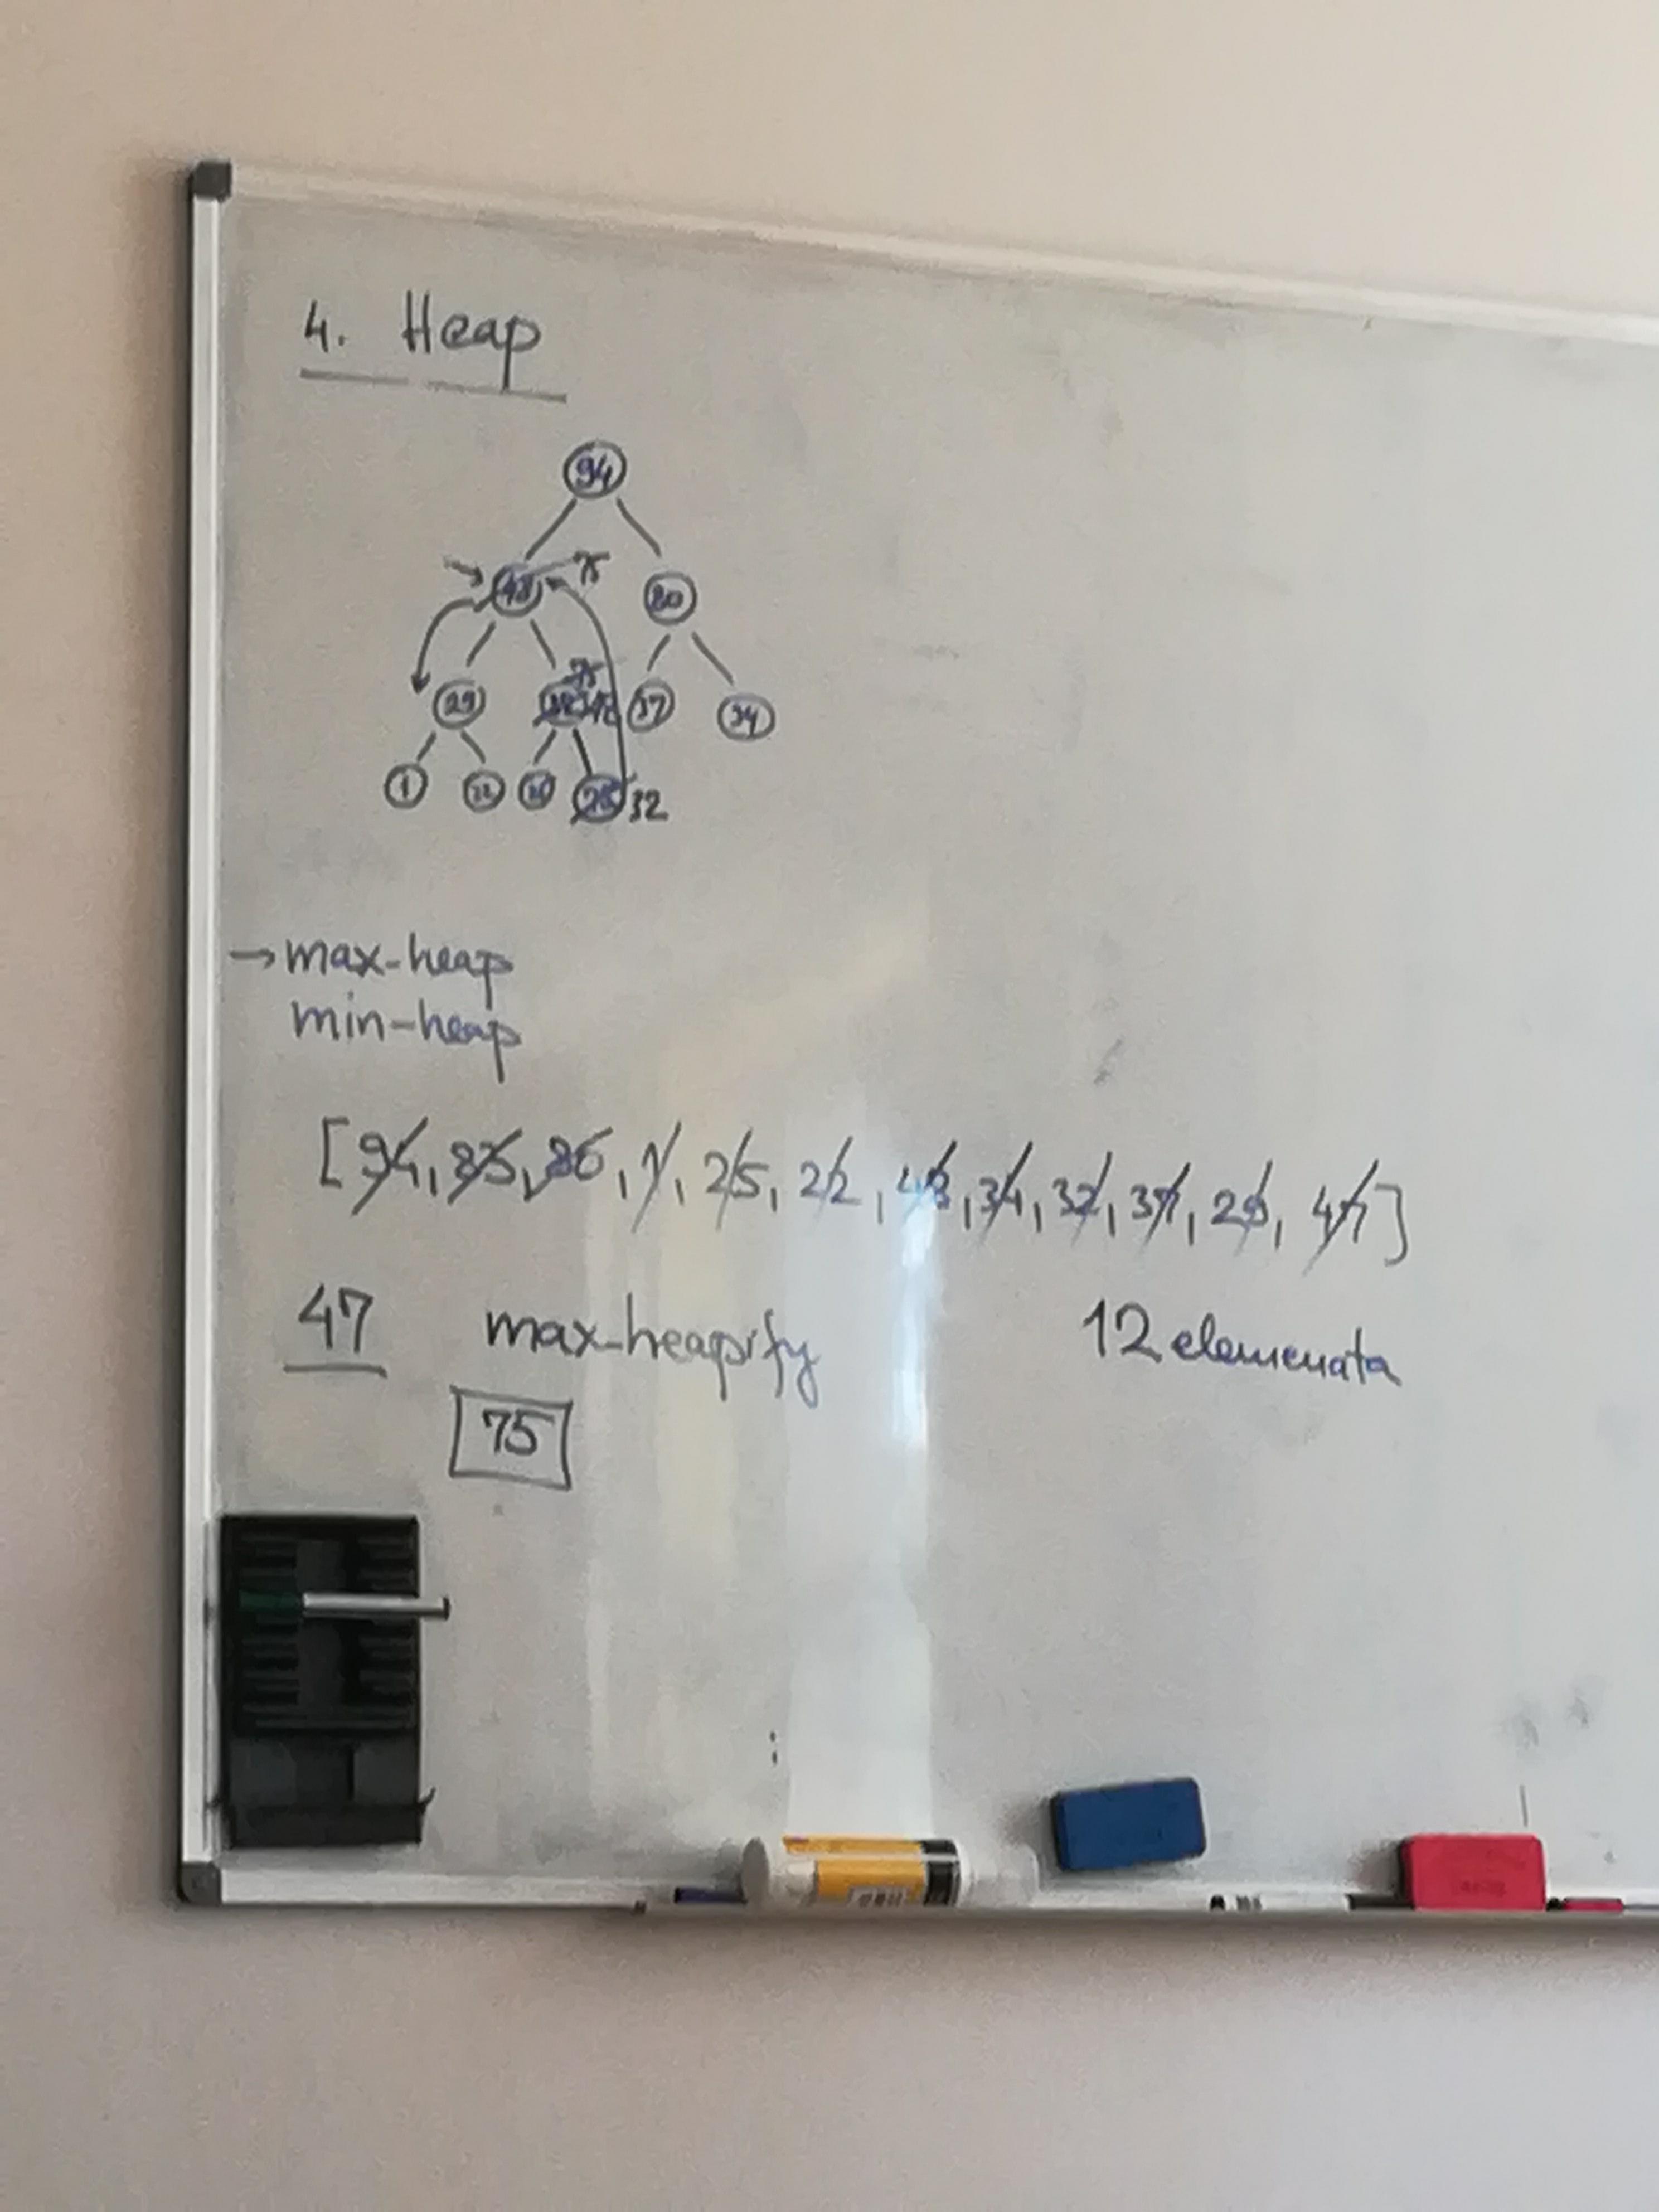 4. Heap
94
75
48
80
75
29
37
34
1
22
32
→ max-heap
min-heap
[94, 85, 86, 1, 25, 22, 48, 34, 32, 37, 29, 47]
47 max-heapify 12 elemenata
75